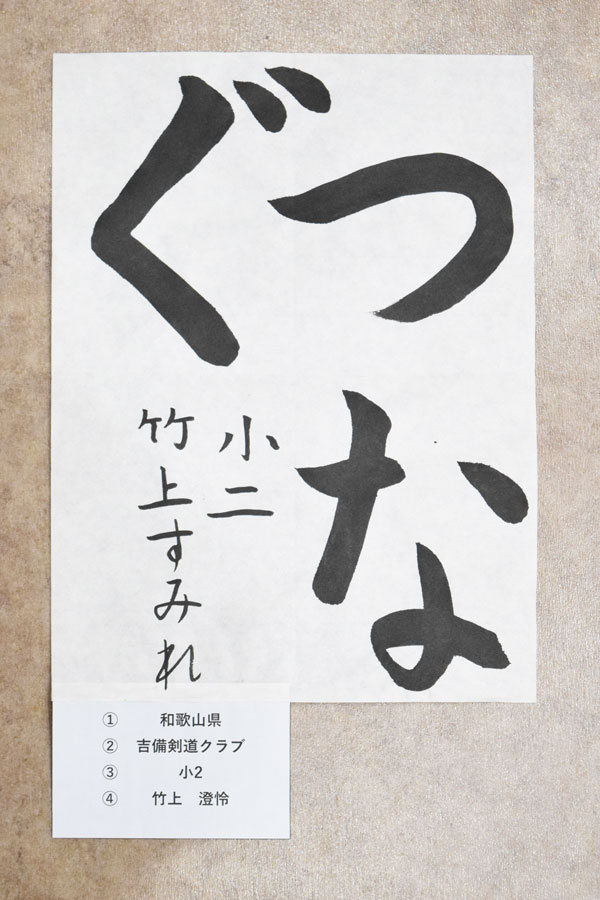 つな
ぐ
小二
竹上すみれ
① 和歌山県
② 吉備剣道クラブ
③ 小2
④ 竹上 澄怜